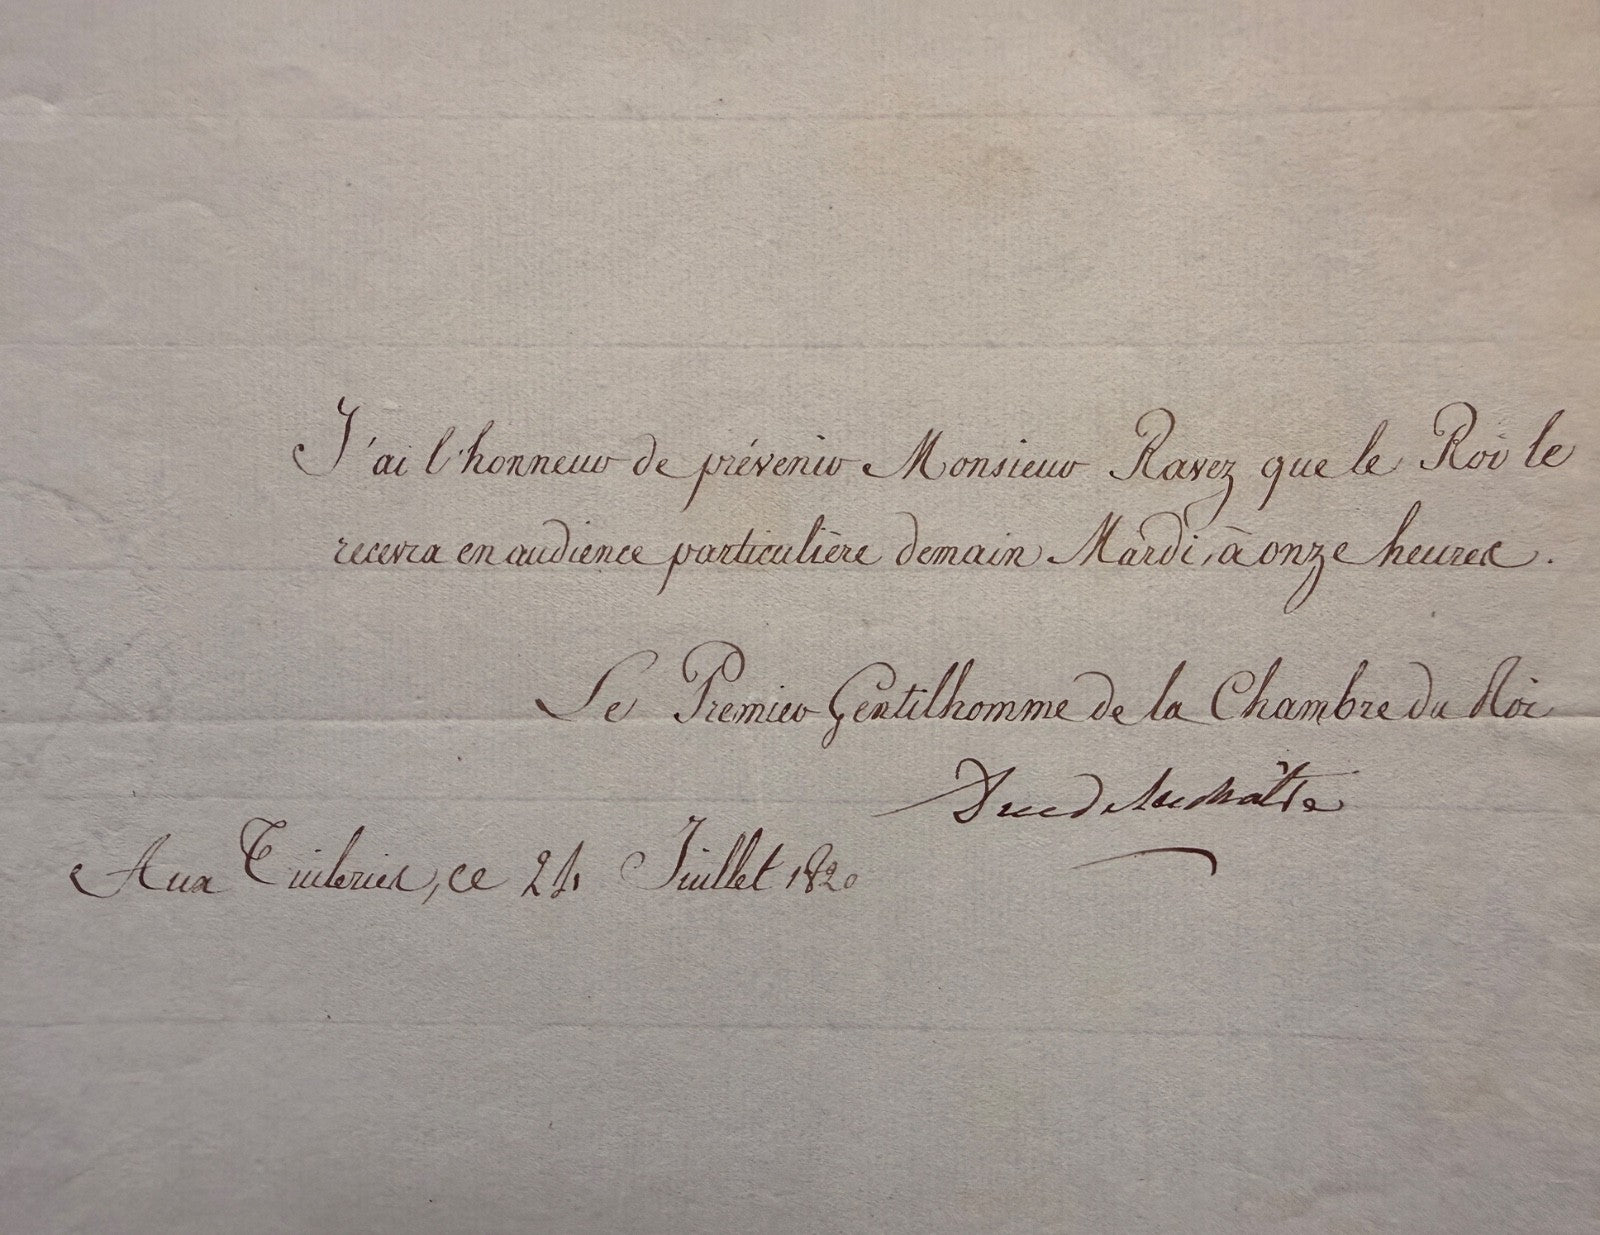 J'ai l'honneur de prévenir Monsieur Ravez que le Roi le
recevra en audience particulière demain Mardi, à onze heures.
Le Premier Gentilhomme de la Chambre du Roi
Duc de la Châtre
Aux Tuileries, ce 24 Juillet 1820